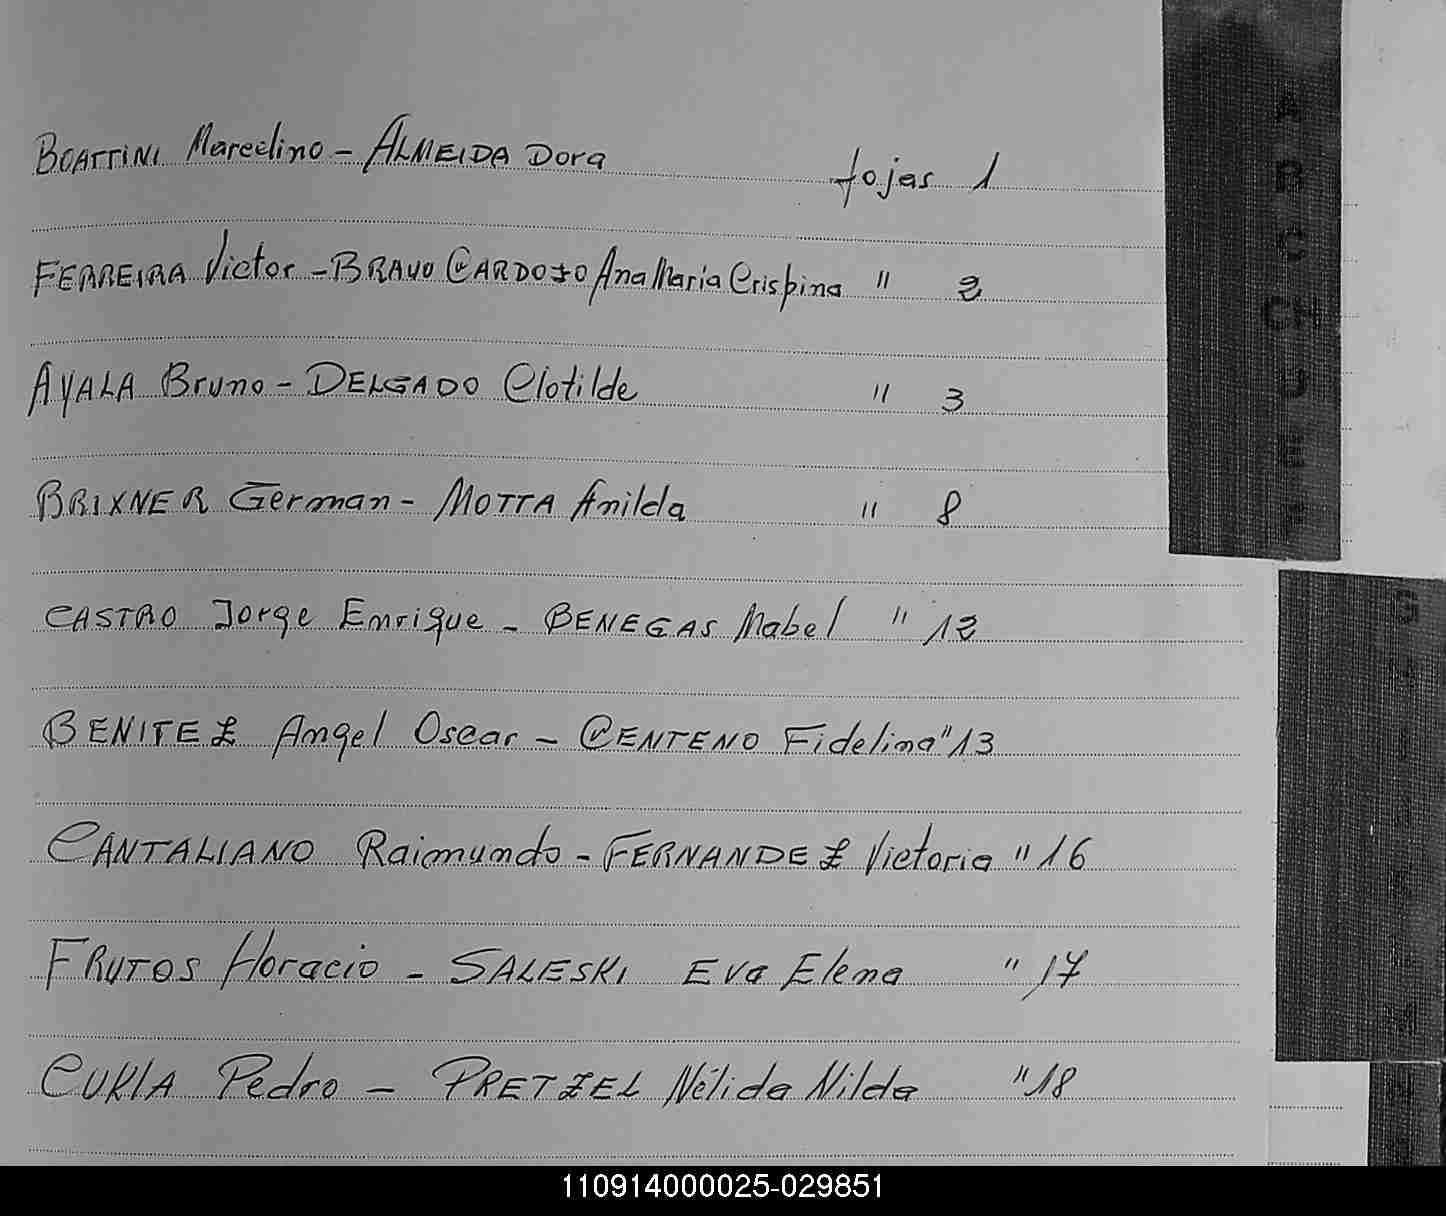 BOATTINI Marcelino - ALMEIDA Dora fojas 1
FERREIRA Victor - BRAVO CARDOZO Ana Maria Crispina " 2
AYALA Bruno - DELGADO Clotilde " 3
BRIXNER German - MOTTA Anilda " 8
CASTRO Jorge Enrique - BENEGAS Mabel " 12
BENITEZ Angel Oscar - CENTENO Fidelina " 13
CANTALIANO Raimundo - FERNANDEZ Victoria " 16
FRUTOS Horacio - SALESKI Eva Elena " 17
CUKLA Pedro - PRETZEL Nélida Nilda " 18
A
B
C
CH
D
E
F
G
H
I
J
K
L
M
110914000025-029851